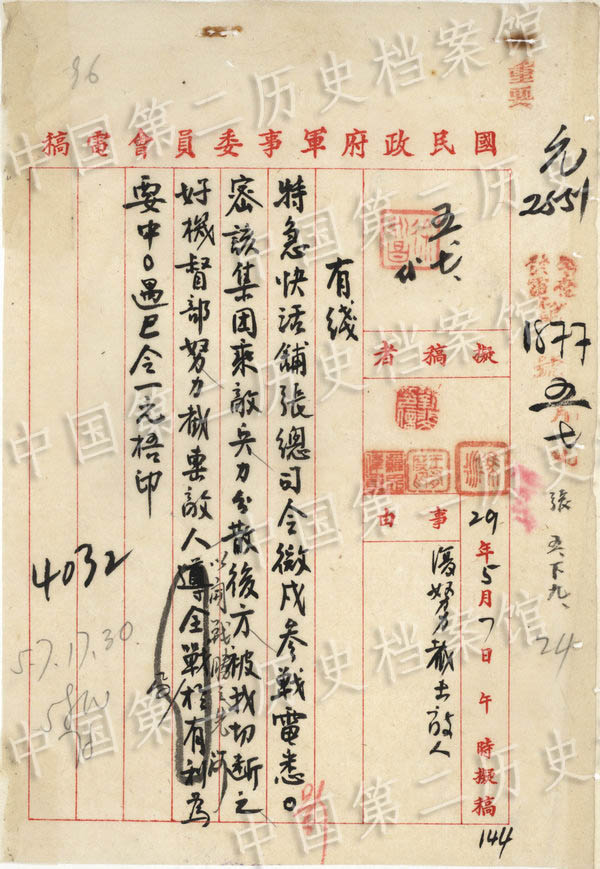 96
重要
國民政府軍事委員會電稿
元
2551
1877
五七
張 五、下九、
24
29年5月7日午時擬稿
144
五七、
擬稿者
事由
復努力截击敌人
有线
特急快活鋪張總司令微戌参戰電悉。
密該集团乘敵兵力分散後方被我切断之
以開戰勝之先河
好機督部努力截击敵人導全戰於有利為
要中〇遇巳令一元梧印
4032
57.17.30.
中国第二历史档案馆